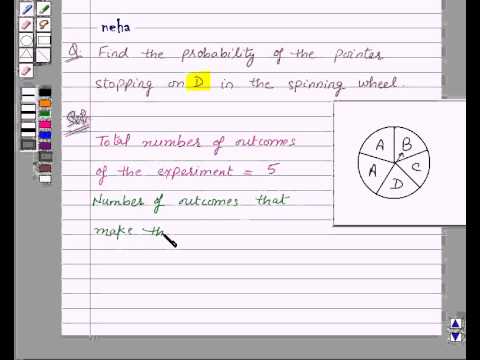 neha
Q. Find the probability of the pointer
stopping on D in the spinning wheel.
Sol:
Total number of outcomes
of the experiment = 5
Number of outcomes that
make th
A B
A C
D